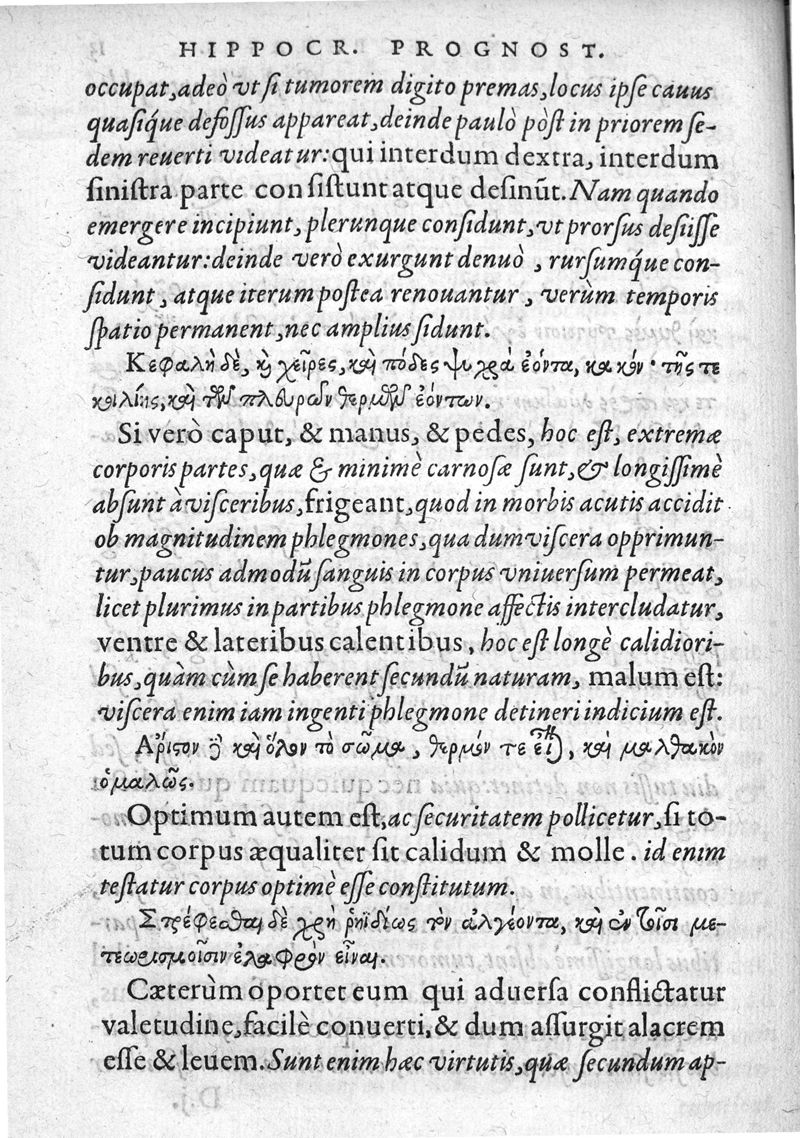 HIPPOCR. PROGNOST.
occupat, adeò vt si tumorem digito premas, locus ipse cauus
quasíque defossus appareat, deinde paulò pòst in priorem se-
dem reuerti videatur: qui interdum dextra, interdum
sinistra parte consistunt atque desinũt. Nam quando
emergere incipiunt, plerunque considunt, vt prorsus desiisse
videantur: deinde verò exurgunt denuò, rursumq́ue con-
sidunt, atque iterum postea renouantur, verùm temporis
spatio permanent, nec amplius sidunt.
Κεφαλὴ δὲ, ϗ χεῖρες, καὶ πόδες ψυχρὰ ἐόντα, κακόν· τῆς τε
κοιλίης, καὶ τῶν πλευρῶν θερμῶν ἐόντων.
Si verò caput, & manus, & pedes, hoc est, extremæ
corporis partes, quæ & minimè carnosæ sunt, & longissimè
absunt à visceribus, frigeant, quod in morbis acutis accidit
ob magnitudinem phlegmones, qua dum viscera opprimun-
tur, paucus admodũ sanguis in corpus vniuersum permeat,
licet plurimus in partibus phlegmone affectis intercludatur,
ventre & lateribus calentibus, hoc est longè calidiori-
bus, quàm cùm se haberent secundũ naturam, malum est:
viscera enim iam ingenti phlegmone detineri indicium est.
Αριστον δὲ καὶ ὅλον τὸ σῶμα, θερμόν τε εἶναι, καὶ μαλθακὸν
ὁμαλῶς.
Optimum autem est, ac securitatem pollicetur, si to-
tum corpus æqualiter sit calidum & molle. id enim
testatur corpus optimè esse constitutum.
Στρέφεσθαι δὲ χρὴ ῥηϊδίως τὸν ἀλγέοντα, καὶ ἐν τοῖσι με-
τεωρισμοῖσιν ἐλαφρὸν εἶναι.
Cæterùm oportet eum qui aduersa conflictatur
valetudine, facilè conuerti, & dum assurgit alacrem
esse & leuem. Sunt enim hæc virtutis, quæ secundum ap-
D.j.